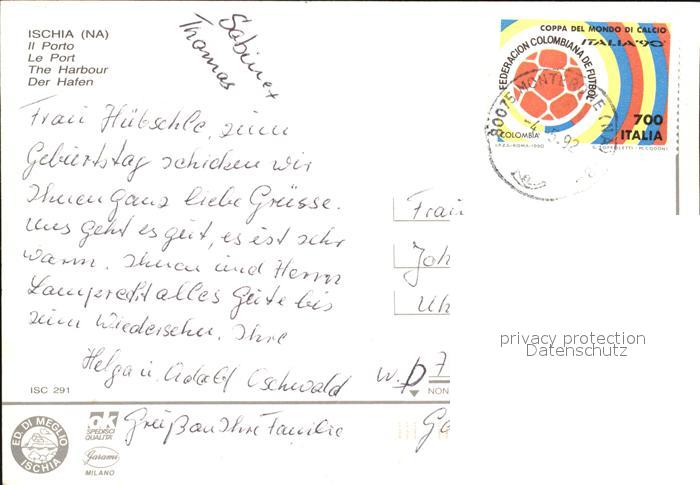 ISCHIA (NA)
Il Porto
Le Port
The Harbour
Der Hafen
Sabine +
Thomas
COPPA DEL MONDO DI CALCIO
ITALIA '90
FEDERACION COLOMBIANA DE FUTBOL
COLOMBIA
700
ITALIA
I.P.Z.S.-ROMA-1990
Frau Hübschle, zum
Geburtstag schicken wir
Ihnen ganz liebe Grüsse.
Uns geht es gut, es ist sehr
warm. Ihnen und Herrn
Lamprecht alles Gute bis
zum Wiedersehn. Ihre
Helga u. Adolf Oschwald
Gruß an Ihre Familie
Frau
Joh
Uh
W.P 7
NON
Ga
privacy protection
Datenschutz
ISC 291
ED. DI MEGLIO
ISCHIA
ok
SPEDISCI
QUALITA'
Garami
MILANO